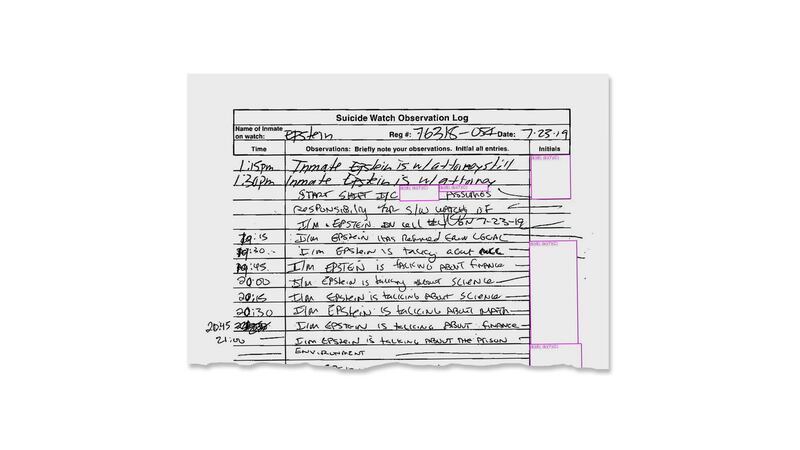 Suicide Watch Observation Log
Name of Inmate on watch: Epstein Reg #: 76318-054 Date: 7-23-19
Time Observations: Briefly note your observations. Initial all entries. Initials
1:15pm Inmate Epstein is w/ attorney still
1:30pm Inmate Epstein is w/ attorney
START SHIFT I/C ASSUMES
RESPONSIBILITY FOR S/W WATCH OF
I/M EPSTEIN IN CELL ON 7-23-19
19:15 I/M EPSTEIN HAS RETURNED FROM LEGAL
19:30 I/M EPSTEIN IS TALKING ABOUT
19:45 I/M EPSTEIN IS TALKING ABOUT FINANCE
20:00 I/M EPSTEIN IS TALKING ABOUT SCIENCE
20:15 I/M EPSTEIN IS TALKING ABOUT SCIENCE
20:30 I/M EPSTEIN IS TALKING ABOUT MATH
20:45 I/M EPSTEIN IS TALKING ABOUT FINANCE
21:00 I/M EPSTEIN IS TALKING ABOUT THE PRISON
ENVIRONMENT